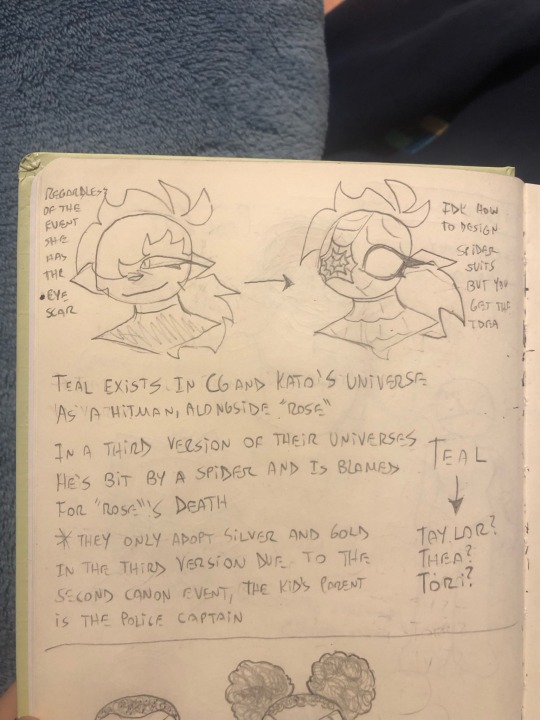 REGARDLESS
OF THE
EVENT
SHE
HAS
THE
EYE
SCAR
IDK HOW
TO DESIGN
SPIDER
SUITS
BUT YOU
GET THE
IDEA
TEAL EXISTS IN CG AND KATO'S UNIVERSE
AS A HITMAN, ALONGSIDE "ROSE"
IN A THIRD VERSION OF THEIR UNIVERSES
HE'S BIT BY A SPIDER AND IS BLAMED
FOR "ROSE"'S DEATH
* THEY ONLY ADOPT SILVER AND GOLD
IN THE THIRD VERSION DUE TO THE
SECOND CANON EVENT, THE KID'S PARENT
IS THE POLICE CAPTAIN
TEAL
TAYLOR?
THEA?
TORI?